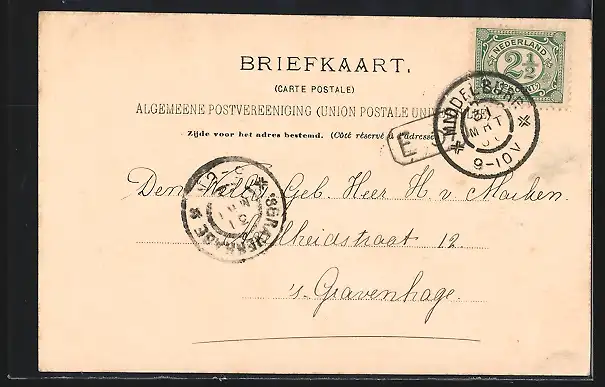 BRIEFKAART.
(CARTE POSTALE)
ALGEMEENE POSTVEREENIGING (UNION POSTALE UNI
Zijde voor het adres bestemd. (Côté réservé à l'adresse
NEDERLAND
2½
CENT
MIDDELBURG
MRT
9-10V
F
'SGRAVENHAGE
Den Geb. Heer H v Marken
heidstraat 12
's Gravenhage.